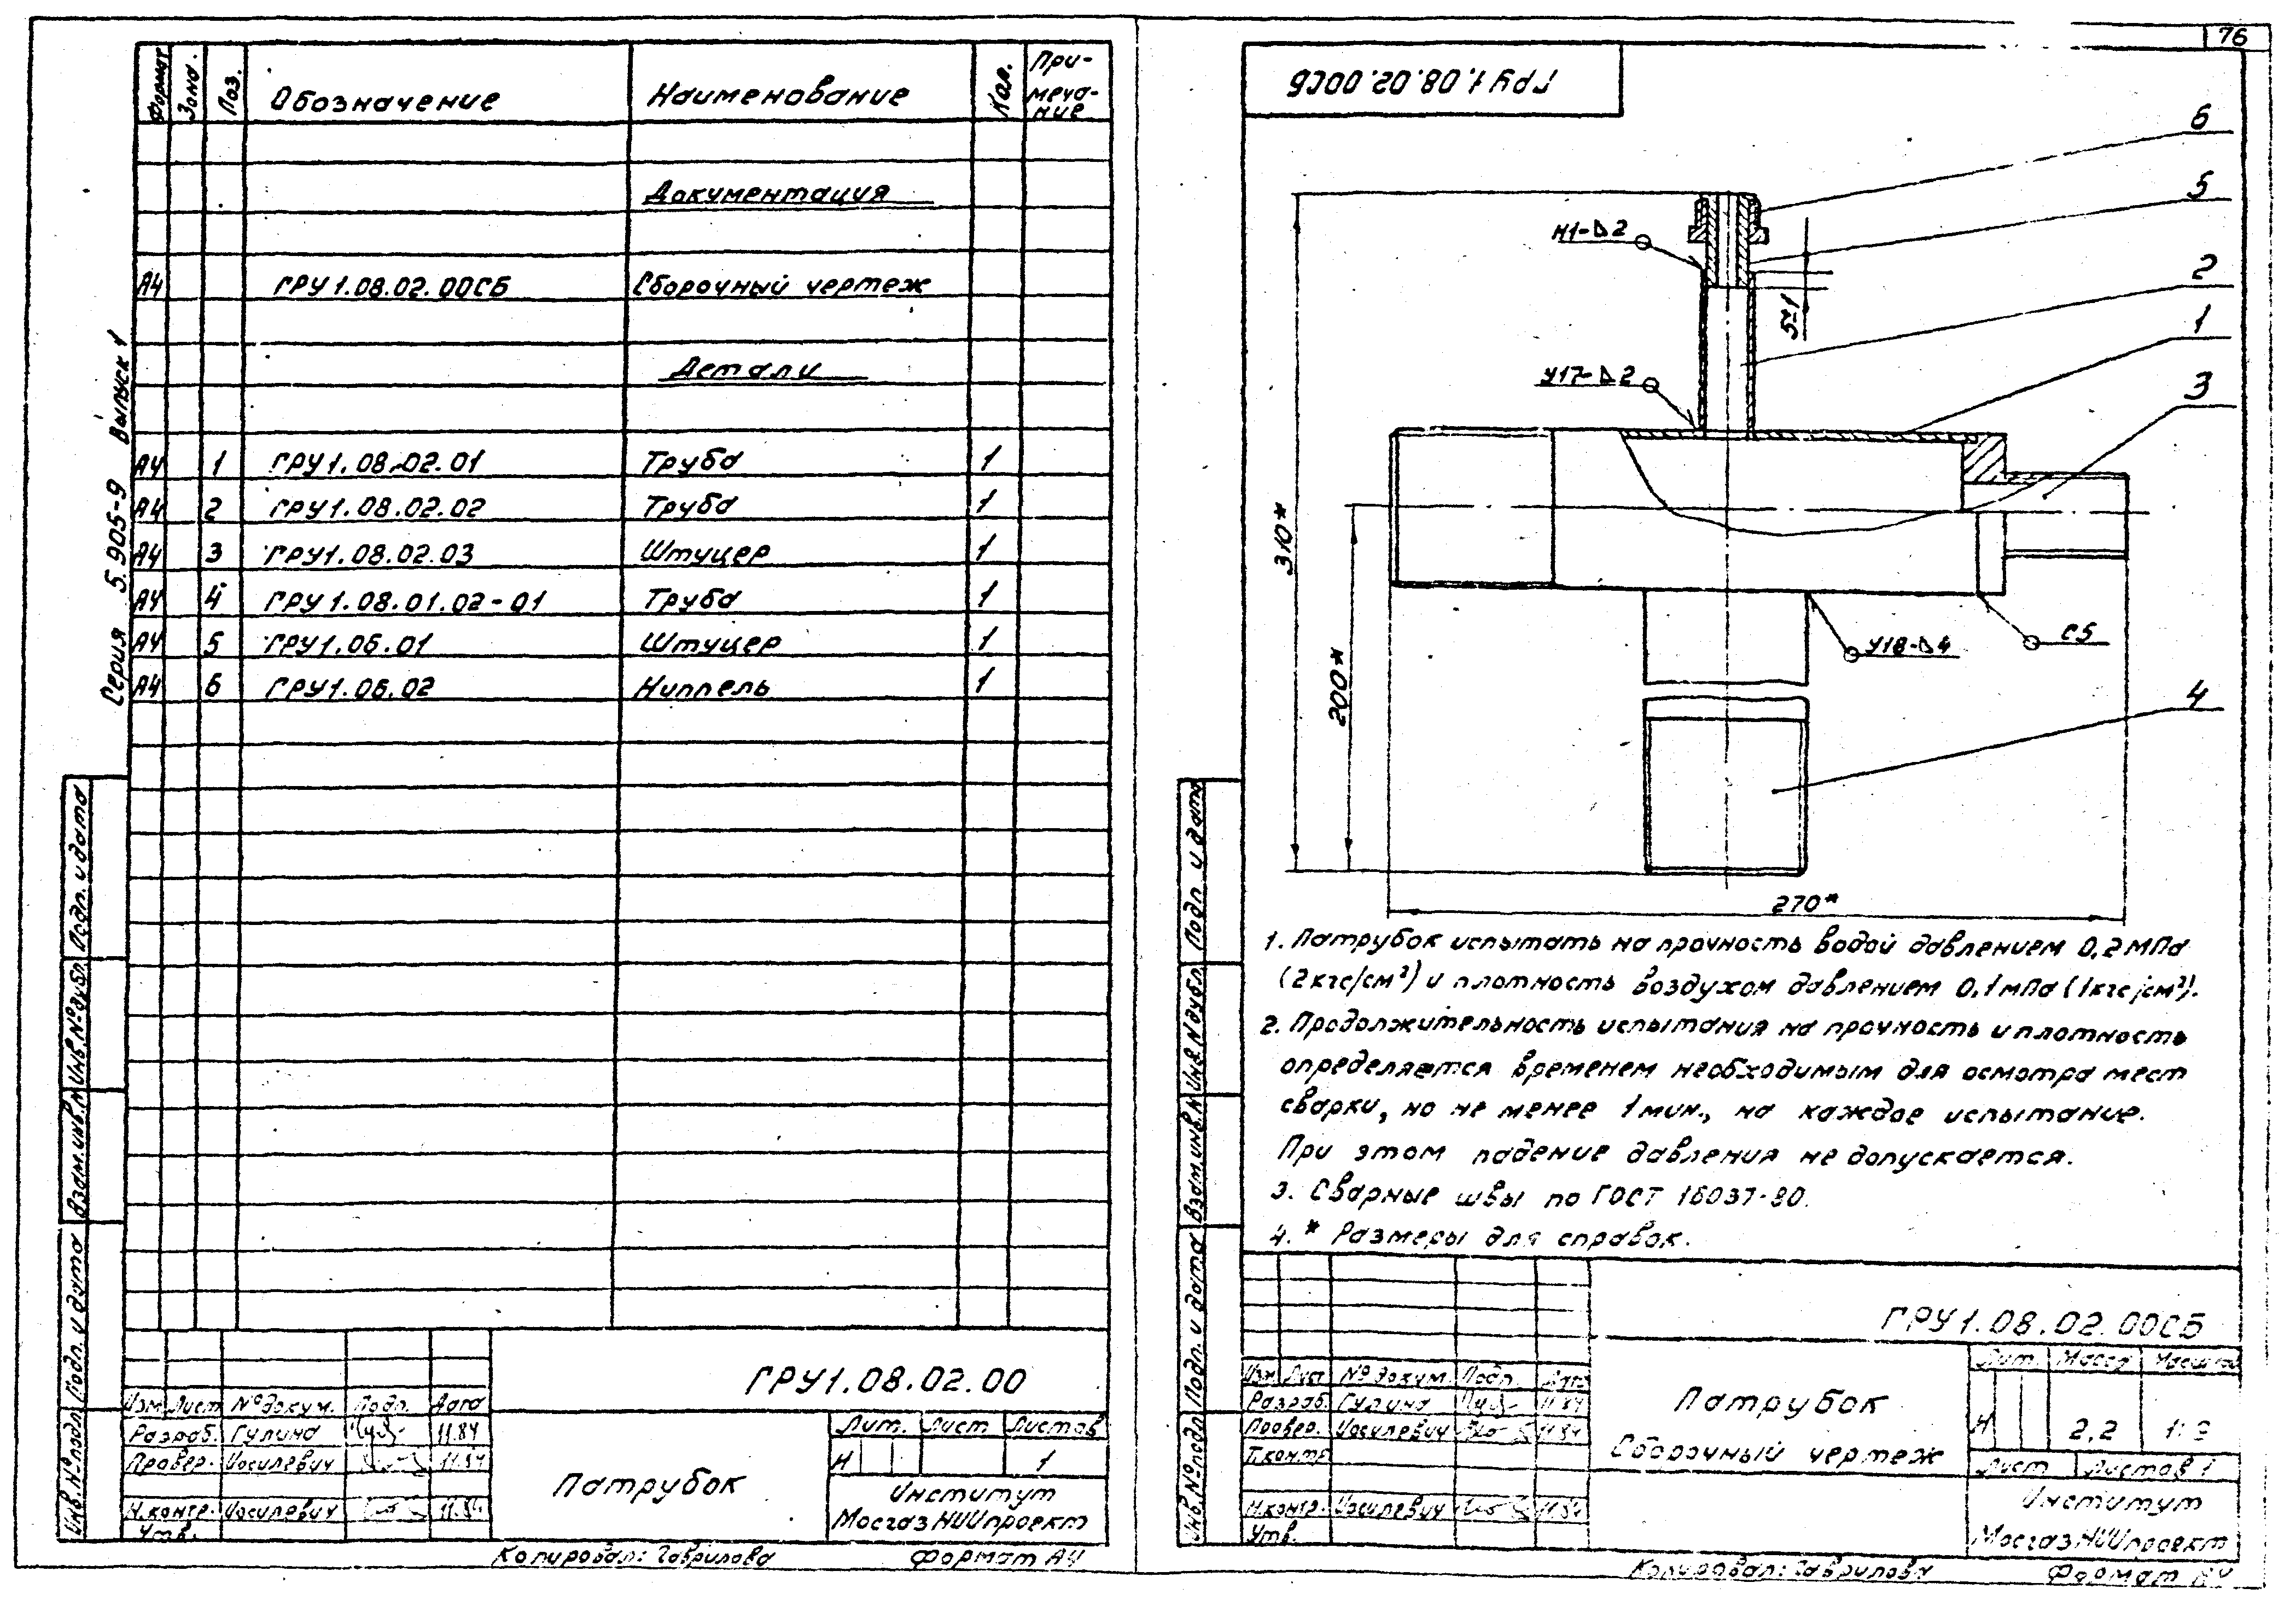 76
Серия 5.905-9 Выпуск 1
Формат Зона. Поз. Обозначение Наименование Кол. При-
меча-
ние
Документация
А4 ГРУ1.08.02.00СБ Сборочный чертеж
Детали
А4 1 ГРУ1.08.02.01 Труба 1
А4 2 ГРУ1.08.02.02 Труба 1
А4 3 ГРУ1.08.02.03 Штуцер 1
А4 4 ГРУ1.08.01.02-01 Труба 1
А4 5 ГРУ1.06.01 Штуцер 1
А4 6 ГРУ1.06.02 Ниппель 1
Подп. и дата
Инв.№дубл.
Взам.инв.№
Подп. и дата
Инв.№подл.
ГРУ1.08.02.00
Изм Лист №докум. Подп. Дата
Разраб. Гулина 11.84
Провер. Иосилевич 11.84
Н.контр. Иосилевич 11.84
Утв.
Патрубок
Лит. Лист Листов
И 1
Институт
МосгазНИИпроект
Копировал: Гаврилова Формат А4
ГРУ1.08.02.00СБ
6
5
2
1
3
4
Н1-⊿2
У17-⊿2
У18-⊿4
С5
5-1
310*
200*
270*
1. Патрубок испытать на прочность водой давлением 0,2МПа
(2кгс/см²) и плотность воздухом давлением 0,1мПа (1кгс/см²).
2. Продолжительность испытания на прочность и плотность
определяется временем необходимым для осмотра мест
сварки, но не менее 1 мин., на каждое испытание.
При этом падение давления не допускается.
3. Сварные швы по ГОСТ 16037-80.
4. * Размеры для справок.
Подп. и дата
Инв.№дубл.
Взам.инв.№
Подп. и дата
Инв.№подл.
ГРУ1.08.02.00СБ
Изм Лист №докум. Подп. Дата
Разраб. Гулина 11.84
Провер. Иосилевич 11.84
Т.контр
Н.контр. Иосилевич 11.84
Утв.
Патрубок
Сборочный чертеж
Лит. Масса Масштаб
И 2,2
Лист Листов 1
Институт
МосгазНИИпроект
Копировал: Гаврилова Формат А4